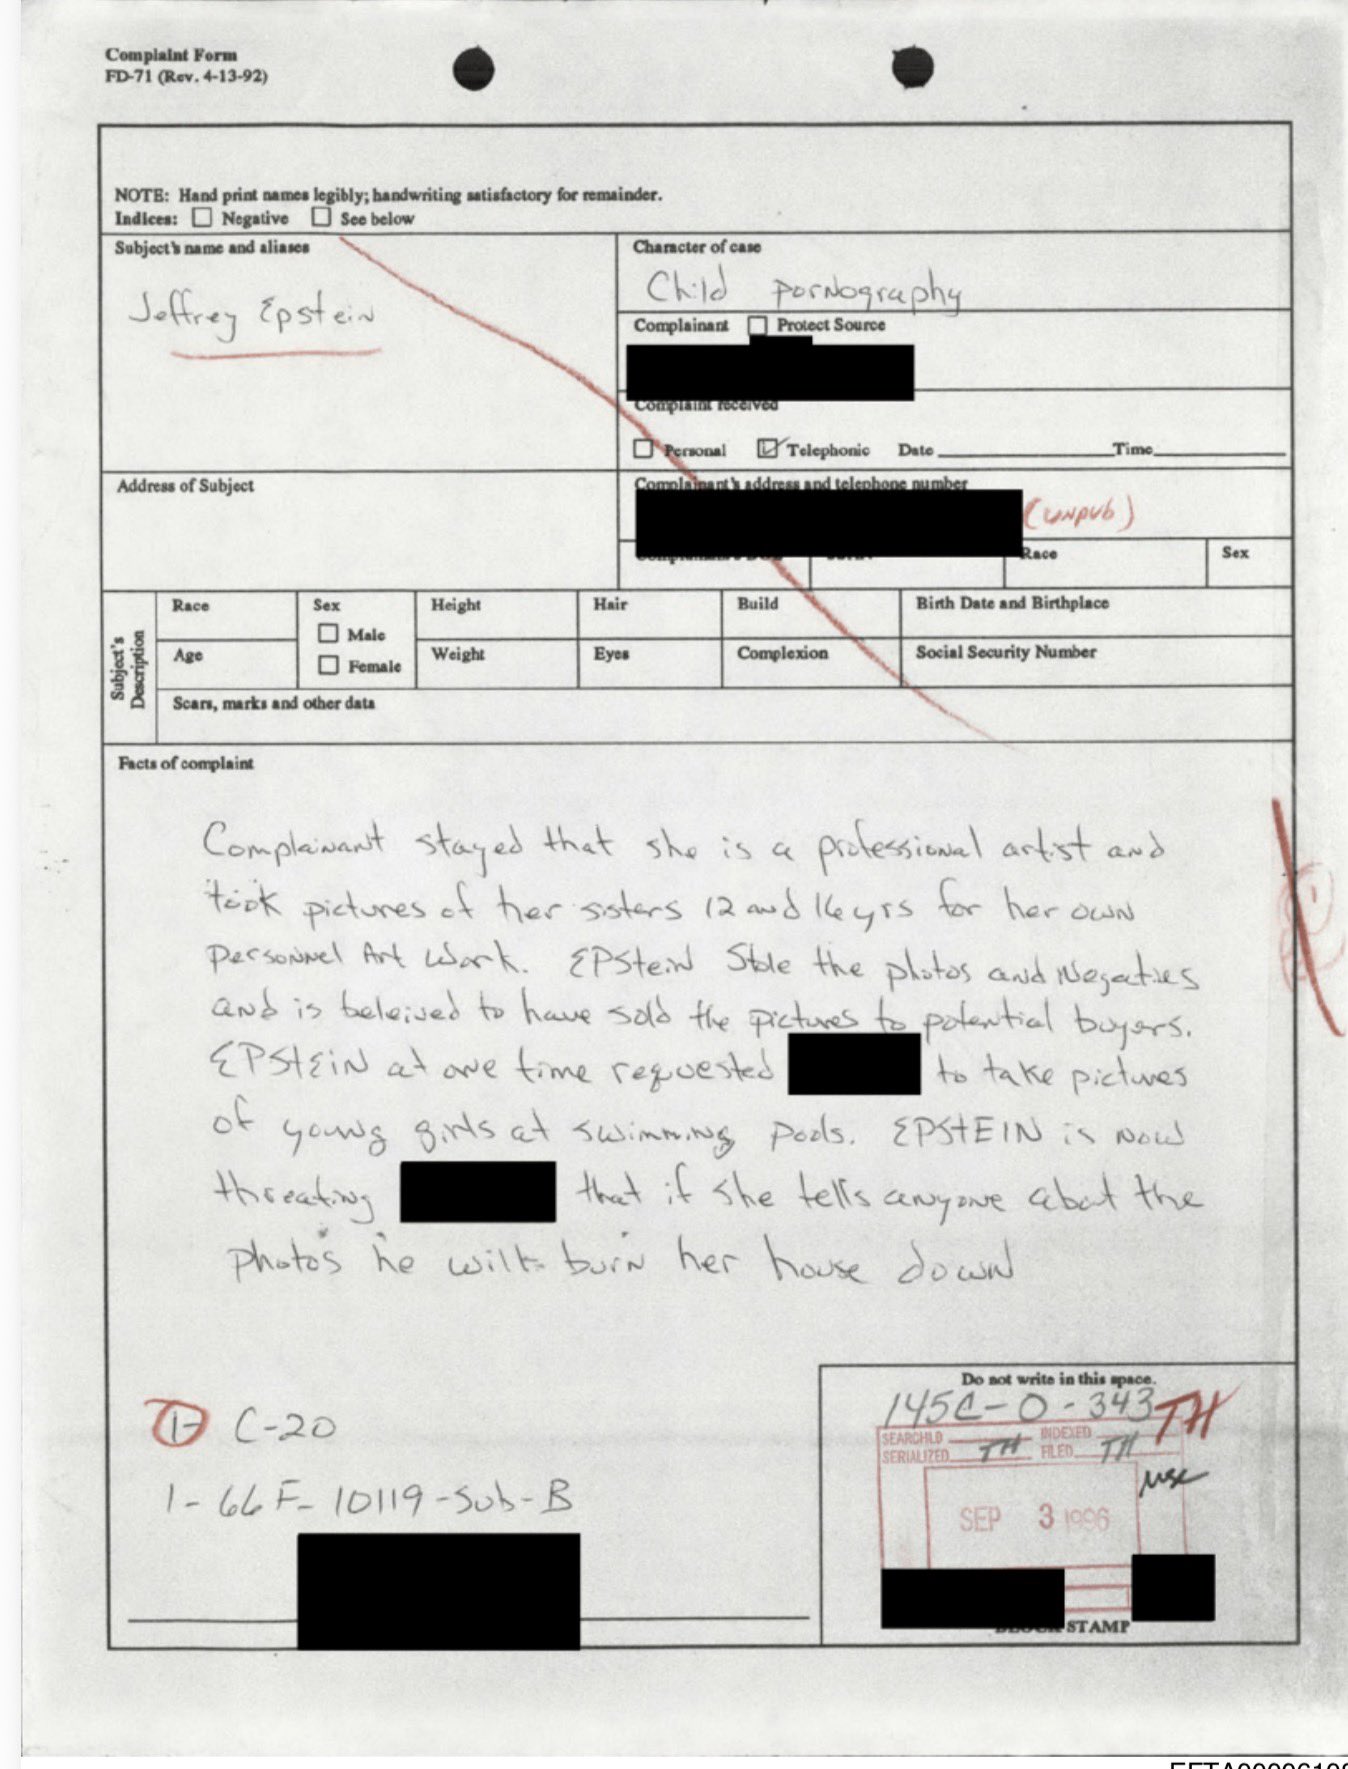 Complaint Form
FD-71 (Rev. 4-13-92)
NOTE: Hand print names legibly; handwriting satisfactory for remainder.
Indices: Negative See below
Subject's name and aliases
Jeffrey Epstein
Character of case
Child pornography
Complainant Protect Source
Complaint received
Personal Telephonic Date Time
Address of Subject
Complainant's address and telephone number
(UNPUB)
Race
Sex
Subject's Description
Race
Sex
Male
Female
Height
Hair
Build
Birth Date and Birthplace
Age
Weight
Eyes
Complexion
Social Security Number
Scars, marks and other data
Facts of complaint
Complainant stayed that she is a professional artist and
took pictures of her sisters 12 and 16 yrs for her own
personnel Art work. EPStein Stole the photos and Negatives
and is beleived to have sold the pictures to potential buyers.
EPStEiN at one time requested to take pictures
of young girls at swimming pools. EPStEIN is now
threating that if she tells anyone about the
photos he will burn her house down
1- C-20
1- 66F-10119-Sub-B
Do not write in this space.
145C-0-343
TH
SEARCHED INDEXED
SERIALIZED TH FILED TH
SEP 3 1996
STAMP